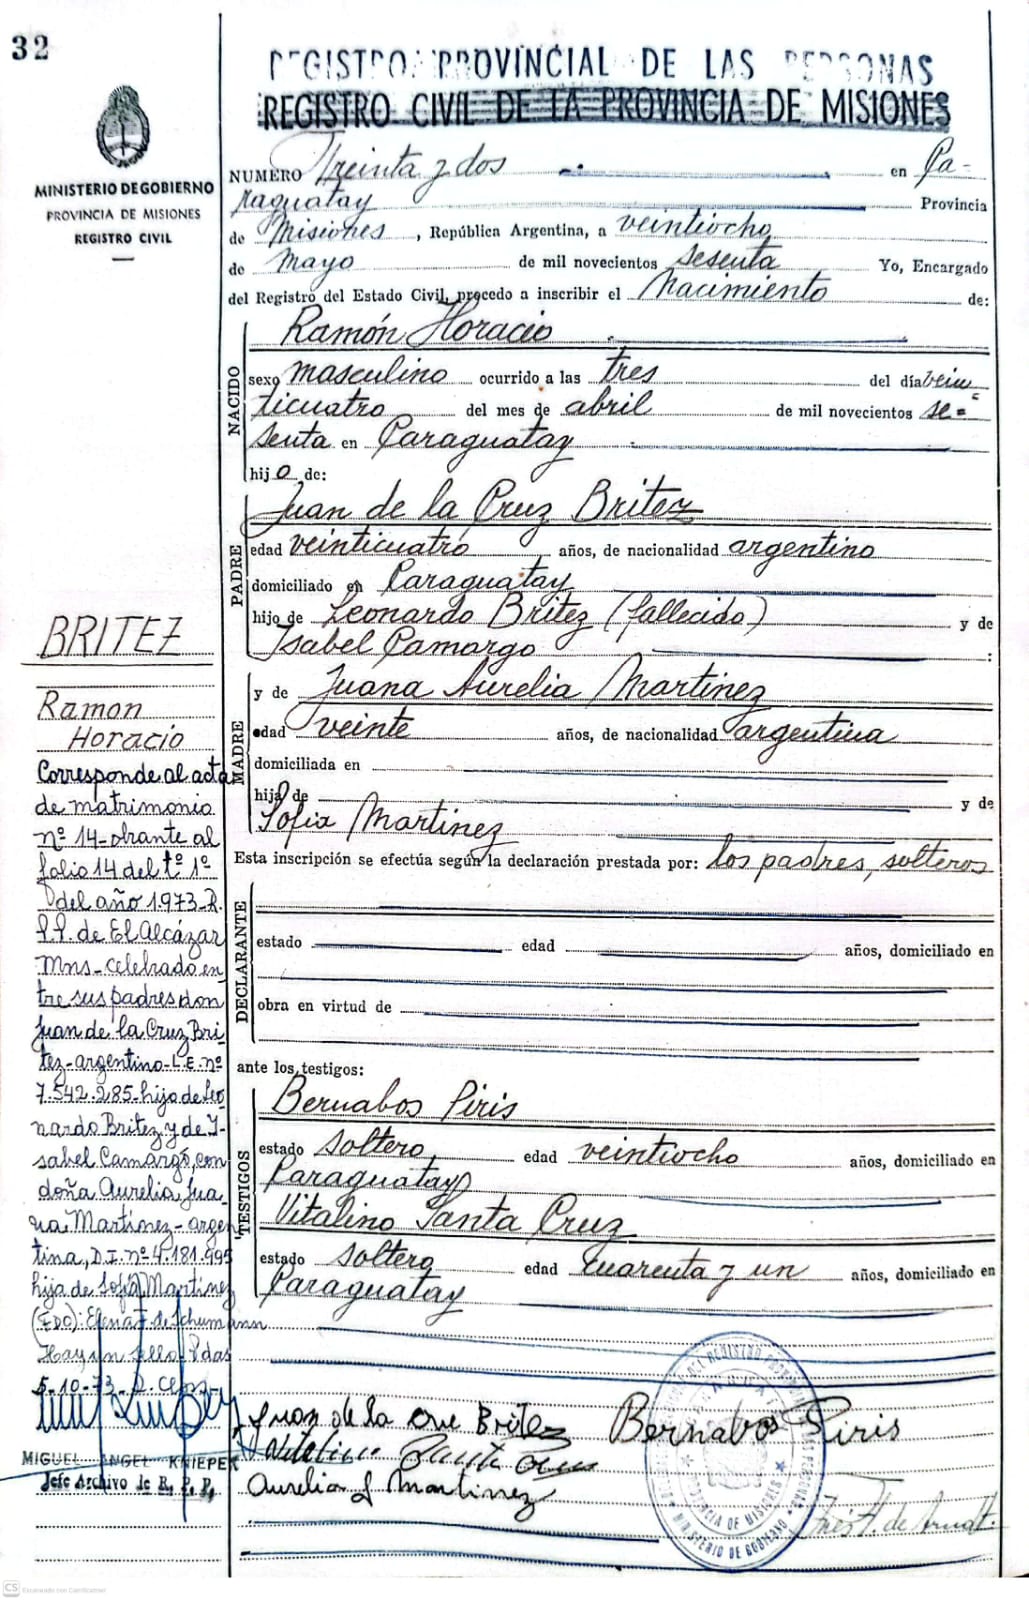 32
REGISTRO PROVINCIAL DE LAS PERSONAS
REGISTRO CIVIL DE LA PROVINCIA DE MISIONES
MINISTERIO DE GOBIERNO
PROVINCIA DE MISIONES
REGISTRO CIVIL
NUMERO Treinta y dos en Pa-
raguatay Provincia
de Misiones, República Argentina, a veintiocho
de Mayo de mil novecientos sesenta Yo, Encargado
del Registro del Estado Civil, procedo a inscribir el Nacimiento de:
NACIDO
Ramón Horacio
sexo masculino ocurrido a las tres del día vein
ticuatro del mes de abril de mil novecientos se=
senta en Paraguatay
hijo de:
PADRE
Juan de la Cruz Britez
edad veinticuatro años, de nacionalidad argentino
domiciliado en Paraguatay
hijo de Leonardo Britez (fallecido) y de
Isabel Camargo :
MADRE
y de Juana Aurelia Martinez
edad veinte años, de nacionalidad argentina
domiciliada en
hija de y de
Sofia Martinez
Esta inscripción se efectúa según la declaración prestada por: los padres, solteros
DECLARANTE
estado edad años, domiciliado en
obra en virtud de
ante los testigos:
TESTIGOS
Bernabos Piris
estado soltero edad veintiocho años, domiciliado en
Paraguatay
Vitalino Santa Cruz
estado soltero edad cuarenta y un años, domiciliado en
Paraguatay
BRITEZ
Ramon
Horacio
Corresponde al acta
de matrimonio
nº 14-obrante al
folio 14 del tº 1º
del año 1973-R.
P.P. de El Alcázar
Mns-celebrado en
tre sus padres don
Juan de la Cruz Bri
tez-argentino-L.E. nº
7.542.285-hijo de Leo
nardo Britez y de I-
sabel Camargo, con
doña Aurelia Jua-
na Martinez-argen
tina, D.I. nº 4.181.995
hija de Sofia Martínez
(FDO): Elena F. de Schumann
Hay un sello Pdas
5-10-73
MIGUEL ANGEL KNIEPER
Jefe Archivo de R. P. P.
Juan de la cruz Britez
Bernabos Piris
Vitalino Santa Cruz
Aurelia J Martinez
PROVINCIA DE MISIONES
MINISTERIO DE GOBIERNO
CS Escaneado con CamScanner